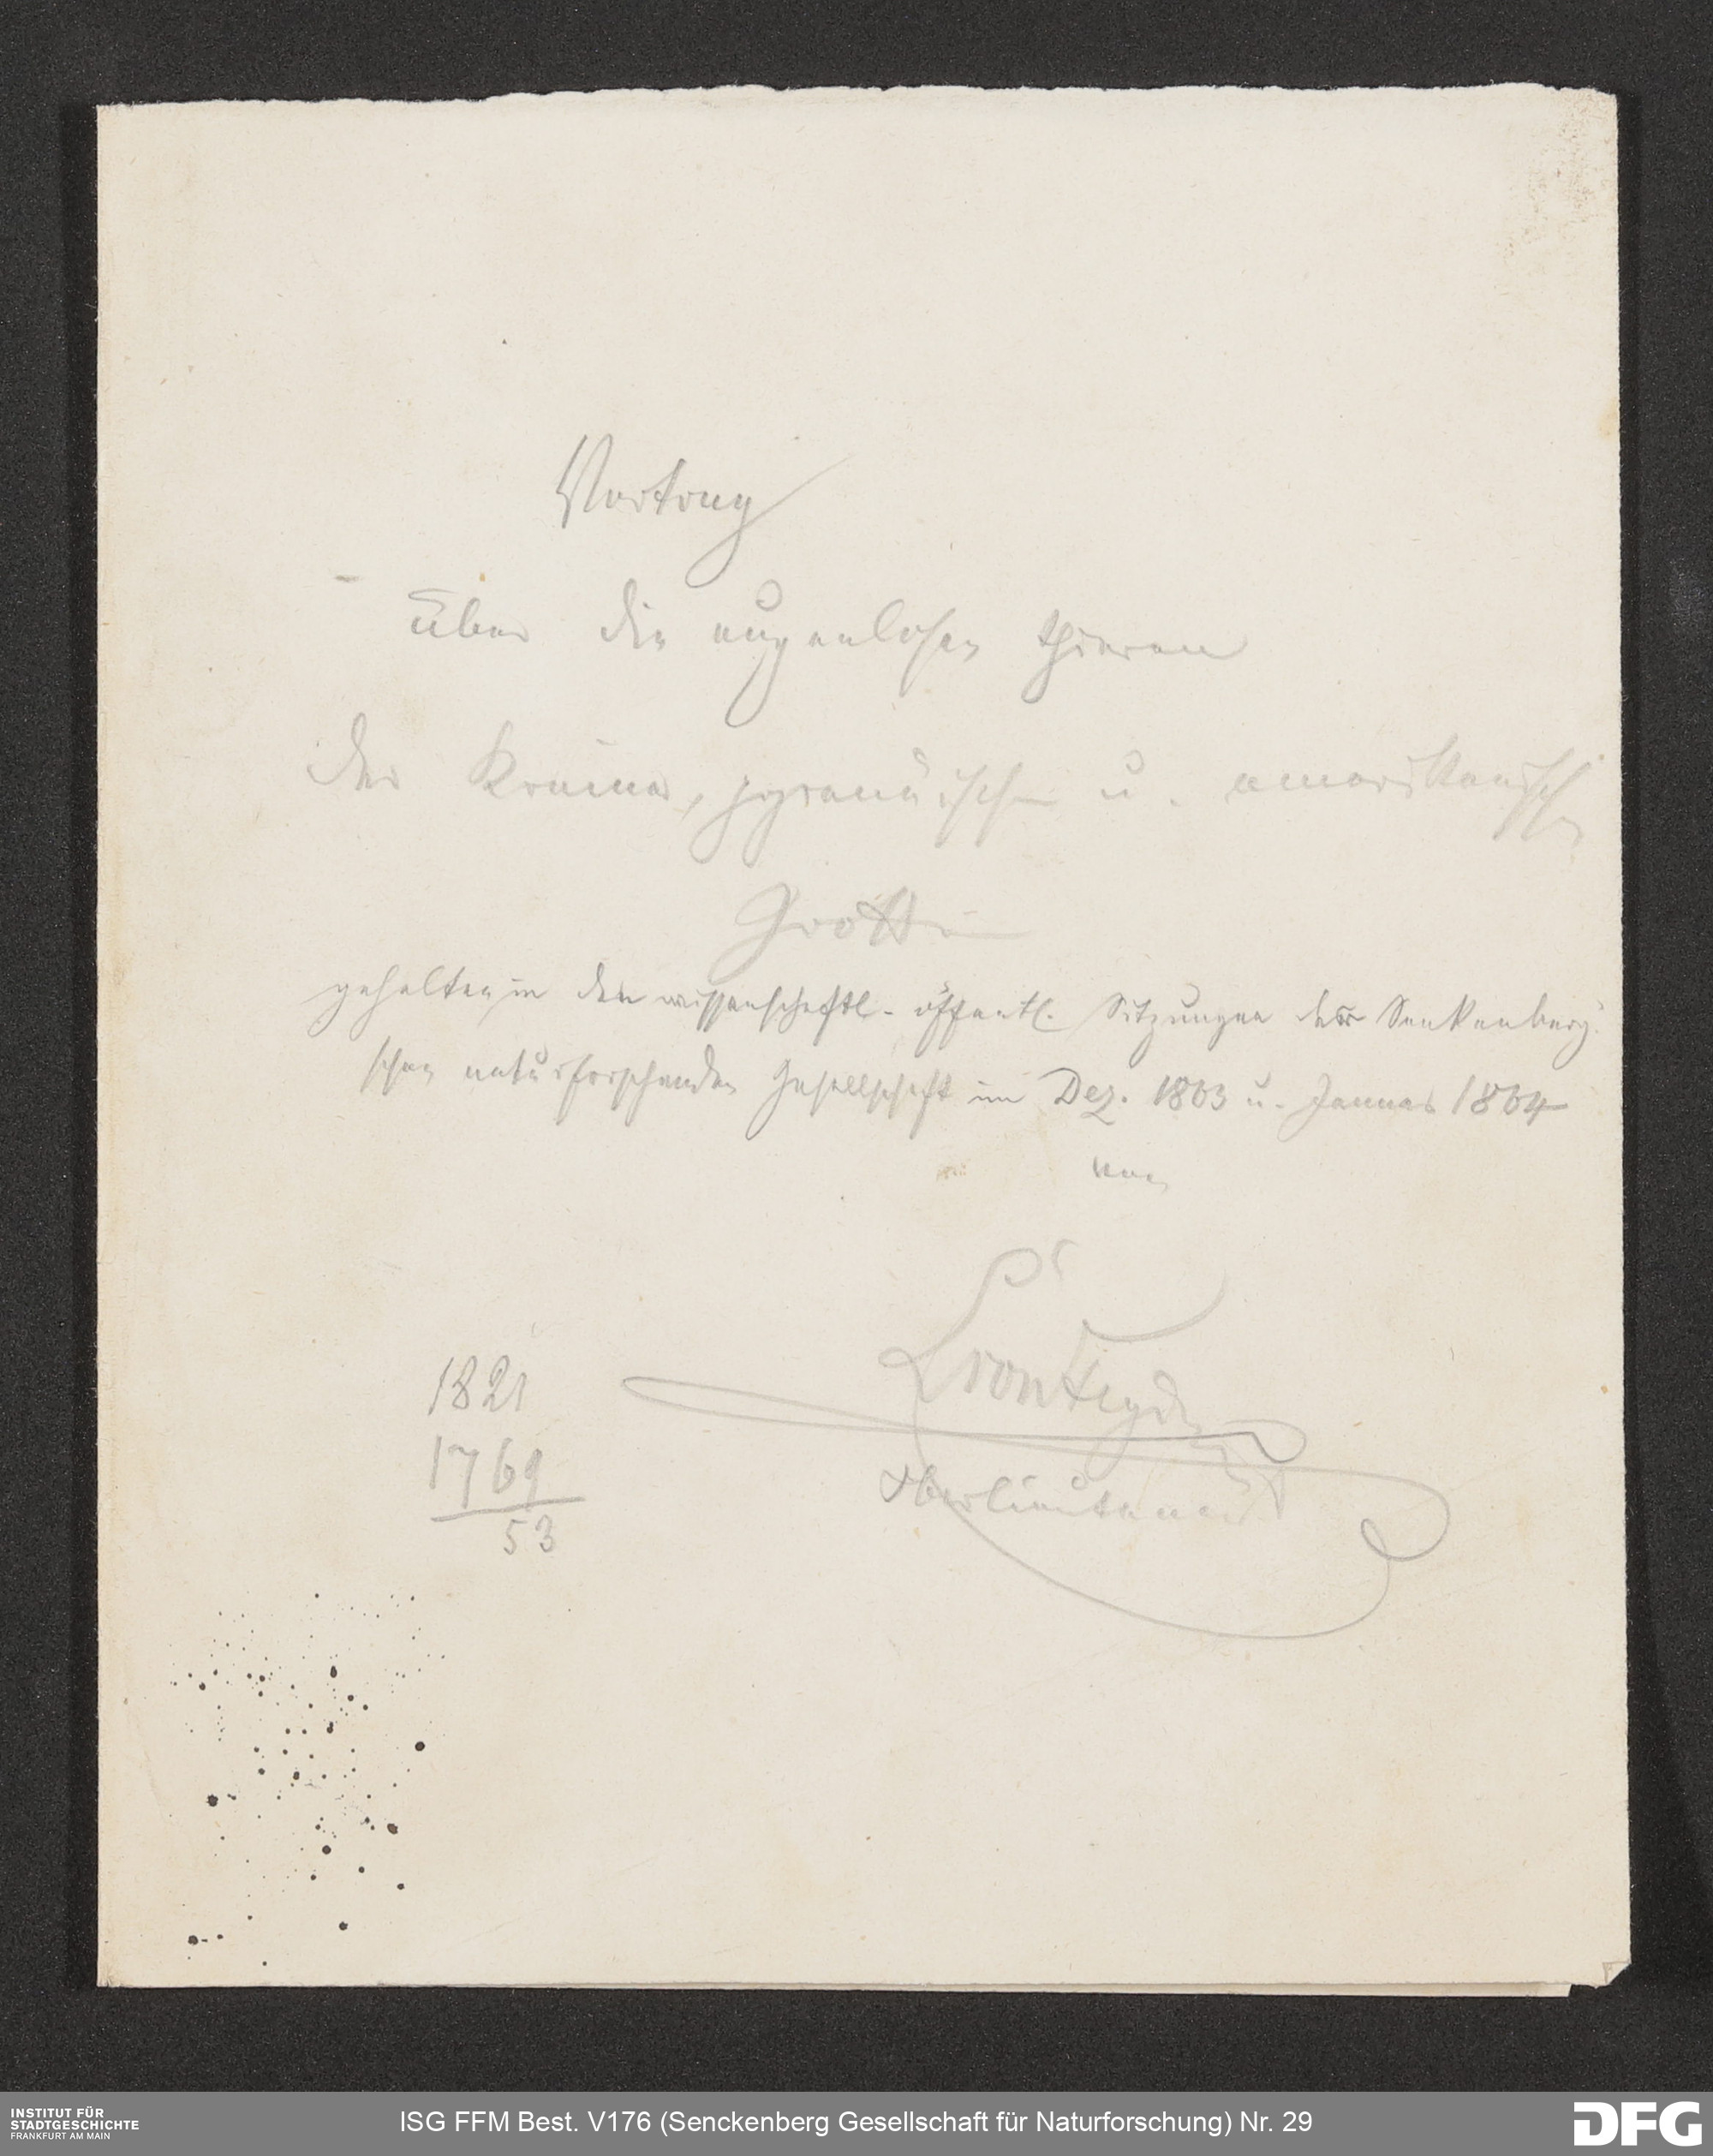 Vortrag
über die augenlosen Thieren
der Krainer, pyrenäischen u. amerikanischen
Grotten
gehalten in den wissenschaftl. öffentl. Sitzungen der Senkenberg.
schen naturforschenden Gesellschaft im Dez. 1863 u. Januar 1864
von
Oberlieutenant
1821
1769
53
INSTITUT FÜR
STADTGESCHICHTE
FRANKFURT AM MAIN
ISG FFM Best. V176 (Senckenberg Gesellschaft für Naturforschung) Nr. 29
DFG